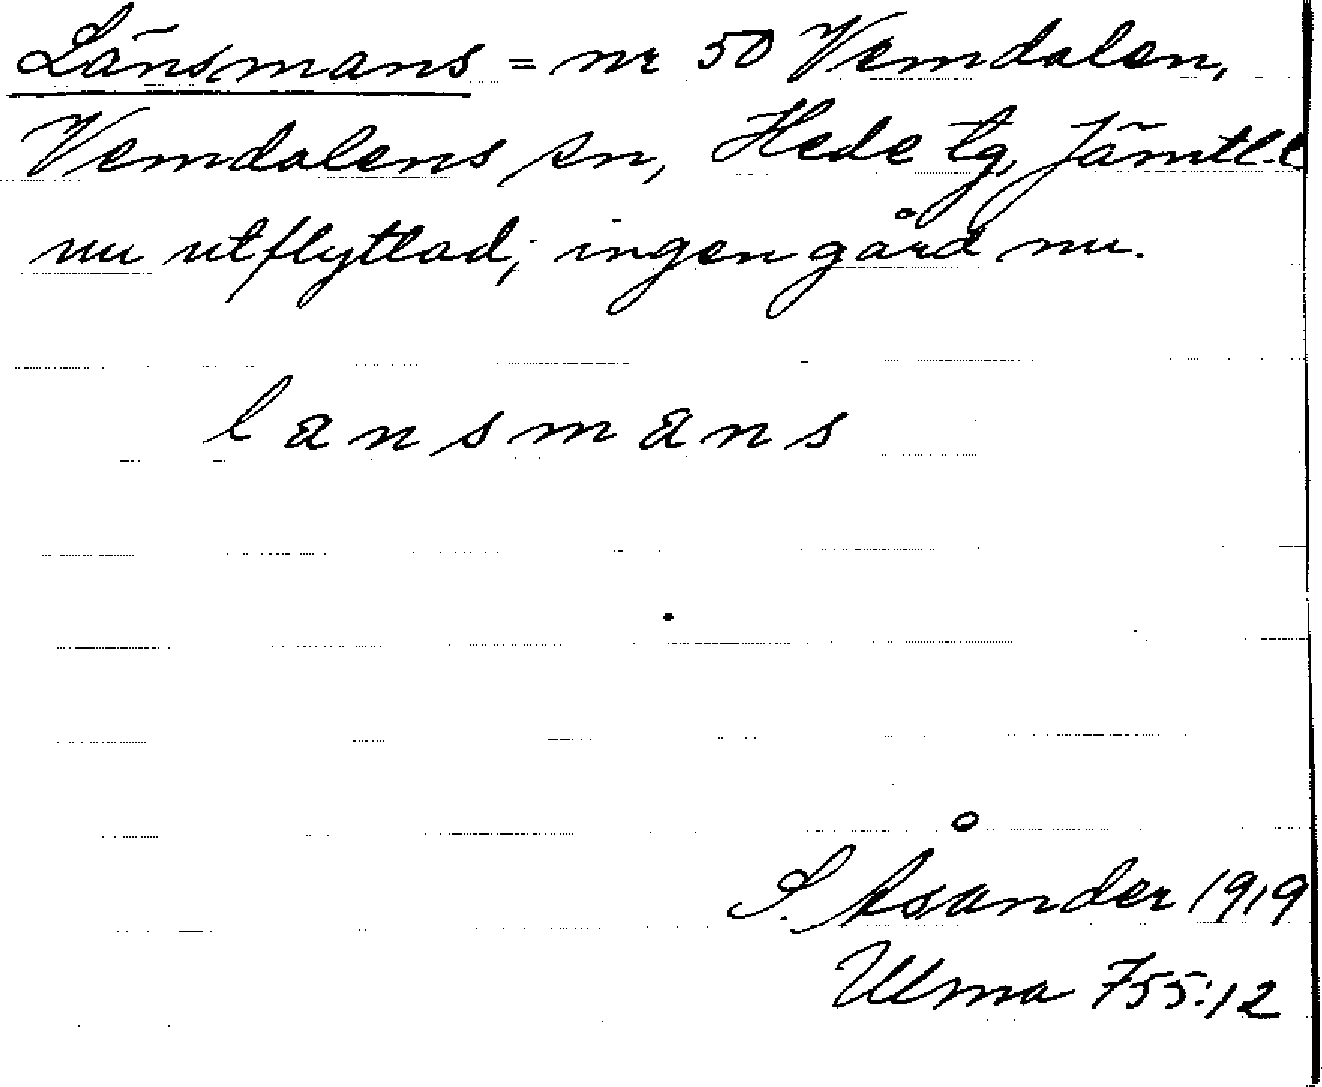 Länsmans = nr 50 Vemdalen,
Vemdalens sn, Hede tg, Jämtl.l
nu utflyttad; ingen gård nu.
lansmans
S. Åsander 1919
Ulma 755:12